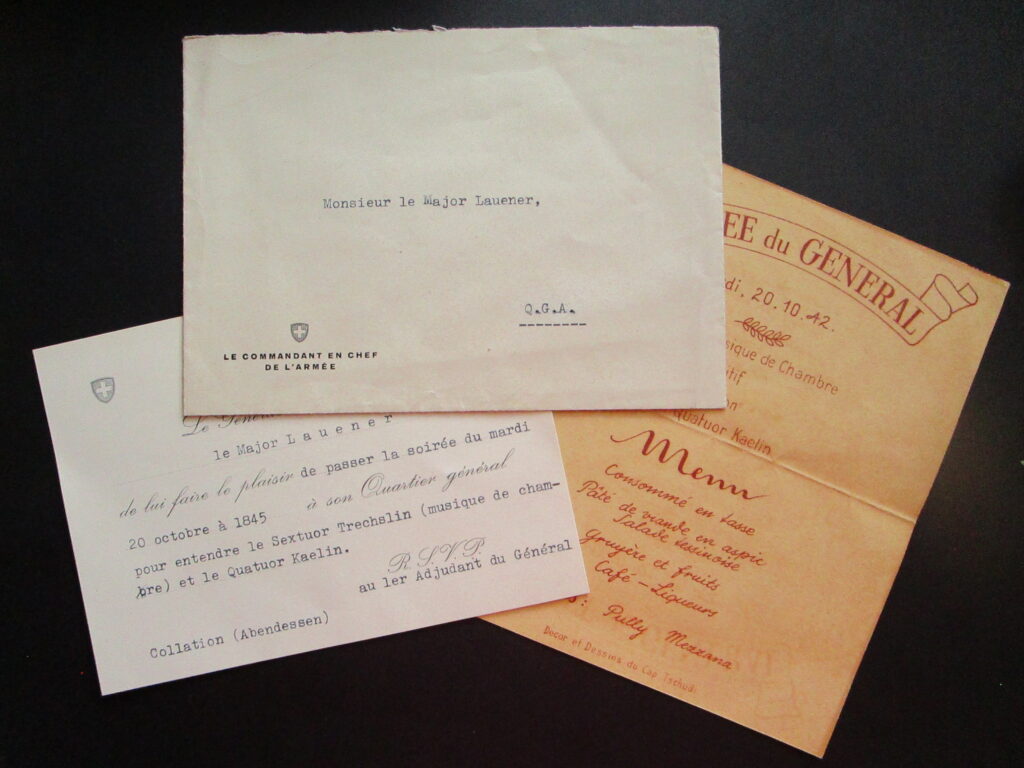 Monsieur le Major Lauener,
Q.G.A.
LE COMMANDANT EN CHEF
DE L'ARMÉE
Le Général
le Major Lauener
de lui faire le plaisir de passer la soirée du mardi
20 octobre à 1845 à son Quartier général
pour entendre le Sextuor Trechslin (musique de cham-
bre) et le Quatuor Kaelin.
R.S.V.P.
au 1er Adjudant du Général
Collation (Abendessen)
EE du GENERAL
di. 20.10.42.
sique de Chambre
tif
on"
Quatuor Kaelin
Menu
Consommé en tasse
Pâté de viande en aspic
Salade tessinoise
Gruyère et fruits
Café - Liqueurs
s: Pully Mezzana
Decor et Dessies du Cap Tschudi